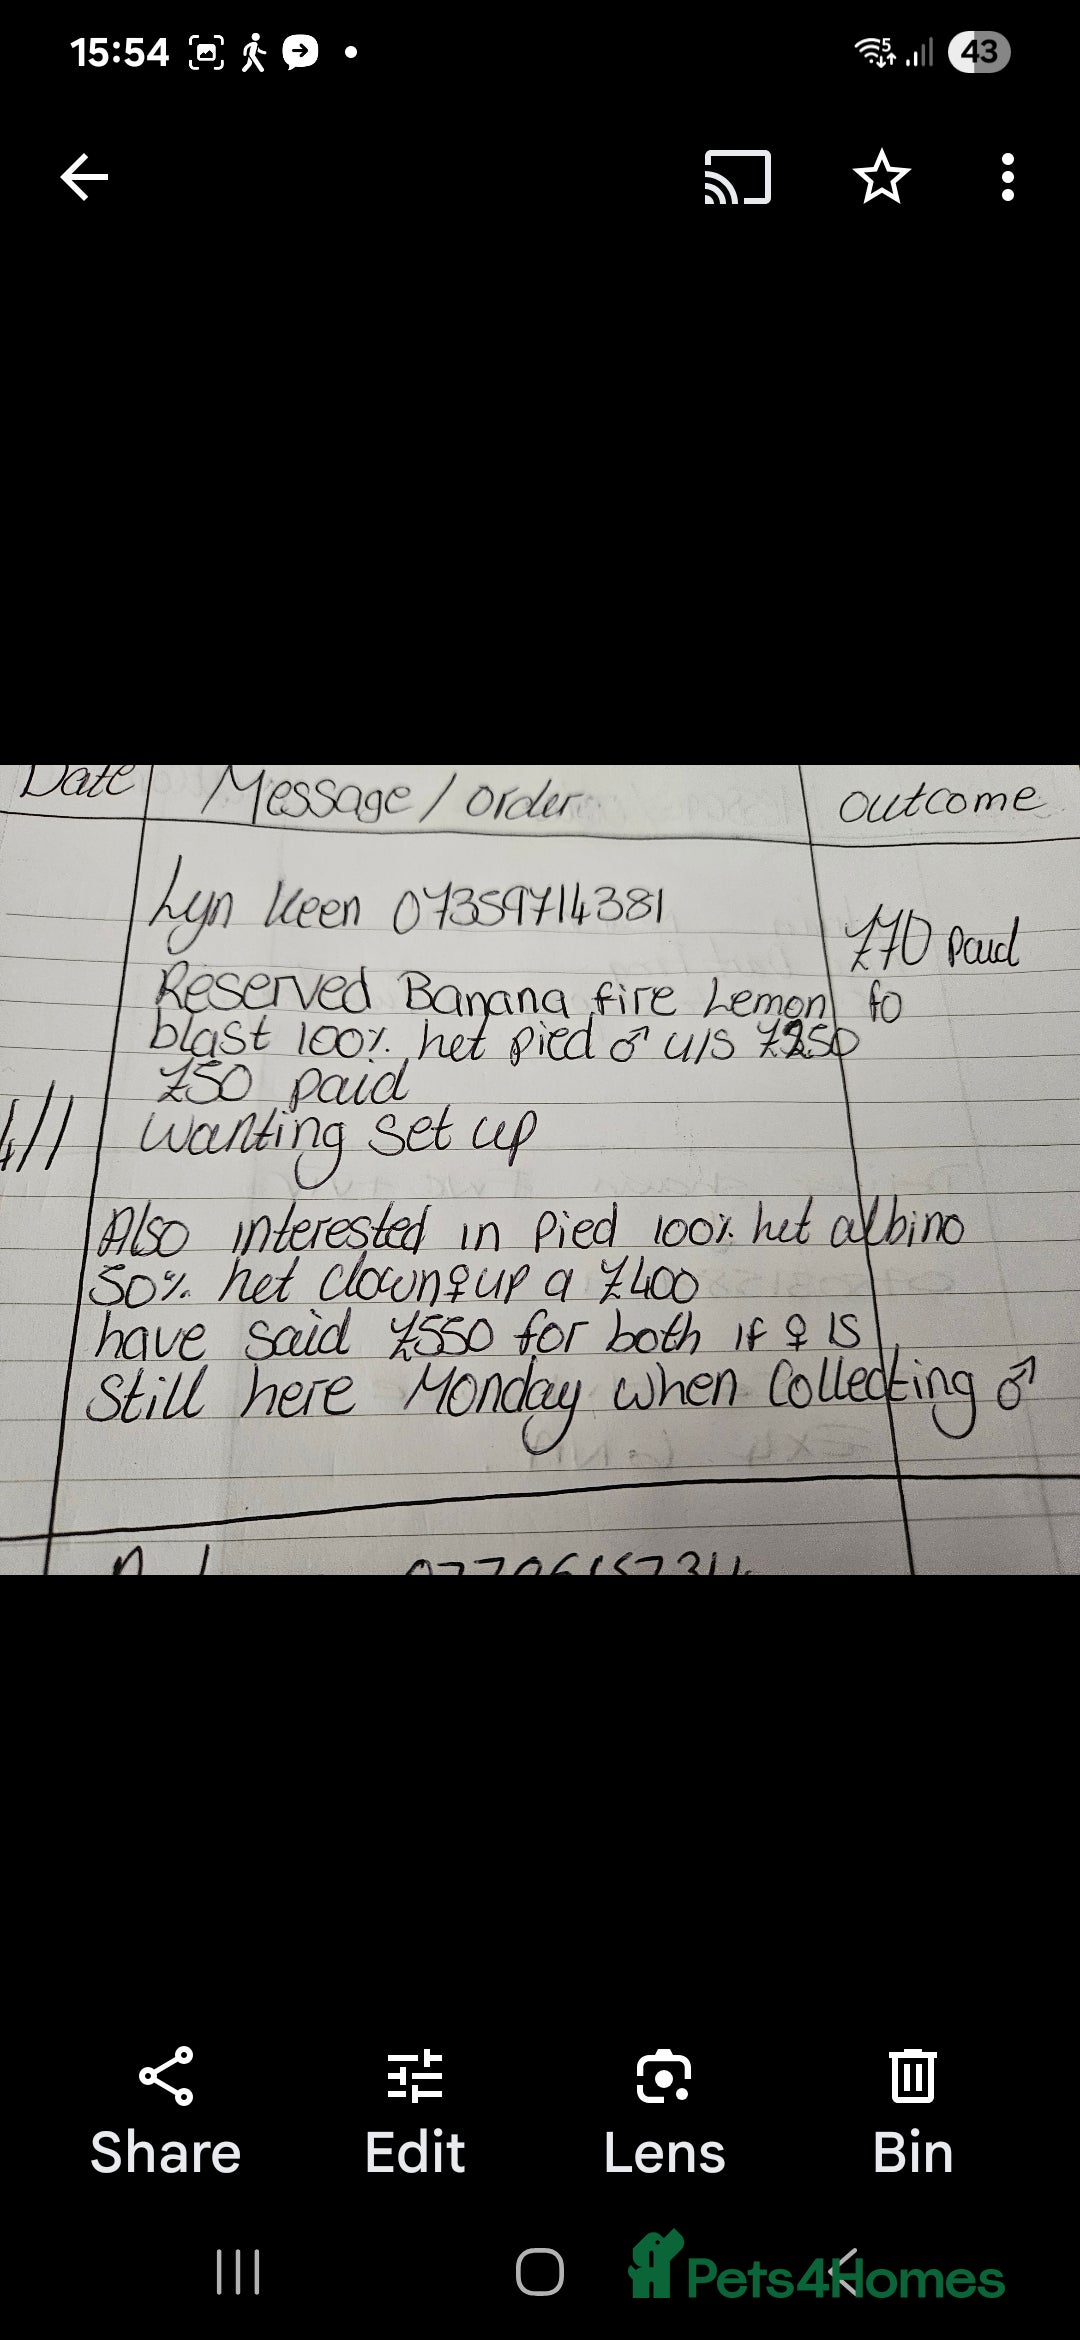 15:54
43
Date Message / order outcome
Lyn Keen 07359714381
£70 paid
Reserved Banana fire Lemon fo
blast 100% het pied ♂ u/s £250
£50 paid
4/1 wanting set up
Also interested in Pied 100% het albino
50% het clown ♀ up a £400
have said £550 for both if ♀ is
Still here Monday when Collecting ♂
Share Edit Lens Bin
Pets4Homes